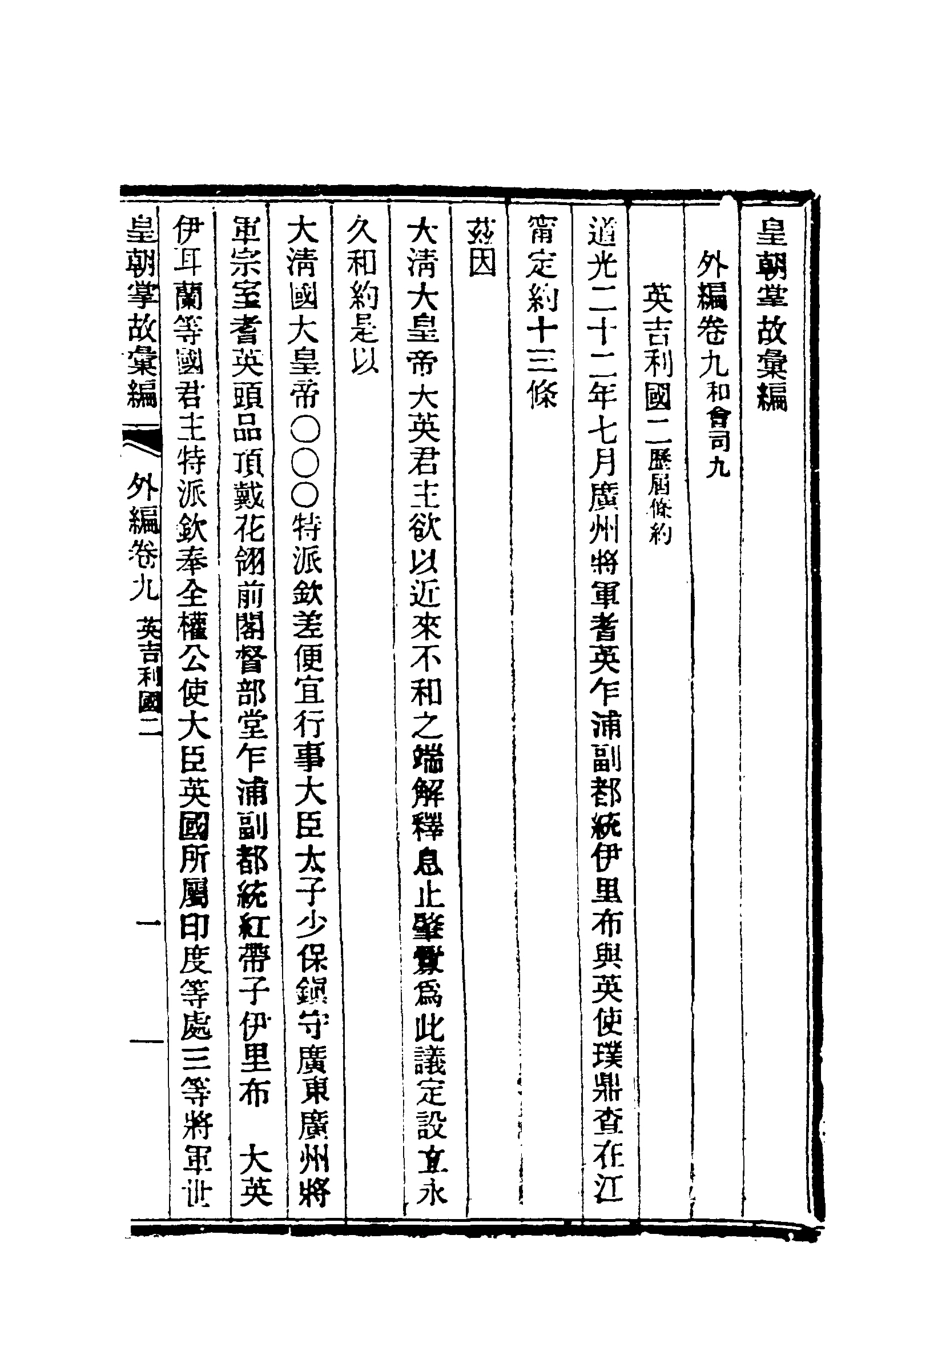 皇朝掌故彙編
外編卷九和會司九
英吉利國二歷屆條約
道光二十二年七月廣州將軍耆英乍浦副都統伊里布與英使璞鼎查在江
甯定約十三條
茲因
大清大皇帝大英君主欲以近來不和之端解釋息止肇釁爲此議定設立永
久和約是以
大清國大皇帝〇〇〇特派欽差便宜行事大臣太子少保鎭守廣東廣州將
軍宗室耆英頭品頂戴花翎前閣督部堂乍浦副都統紅帶子伊里布　大英
伊耳蘭等國君主特派欽奉全權公使大臣英國所屬印度等處三等將軍世
皇朝掌故彙編　外編卷九　英吉利國二　一